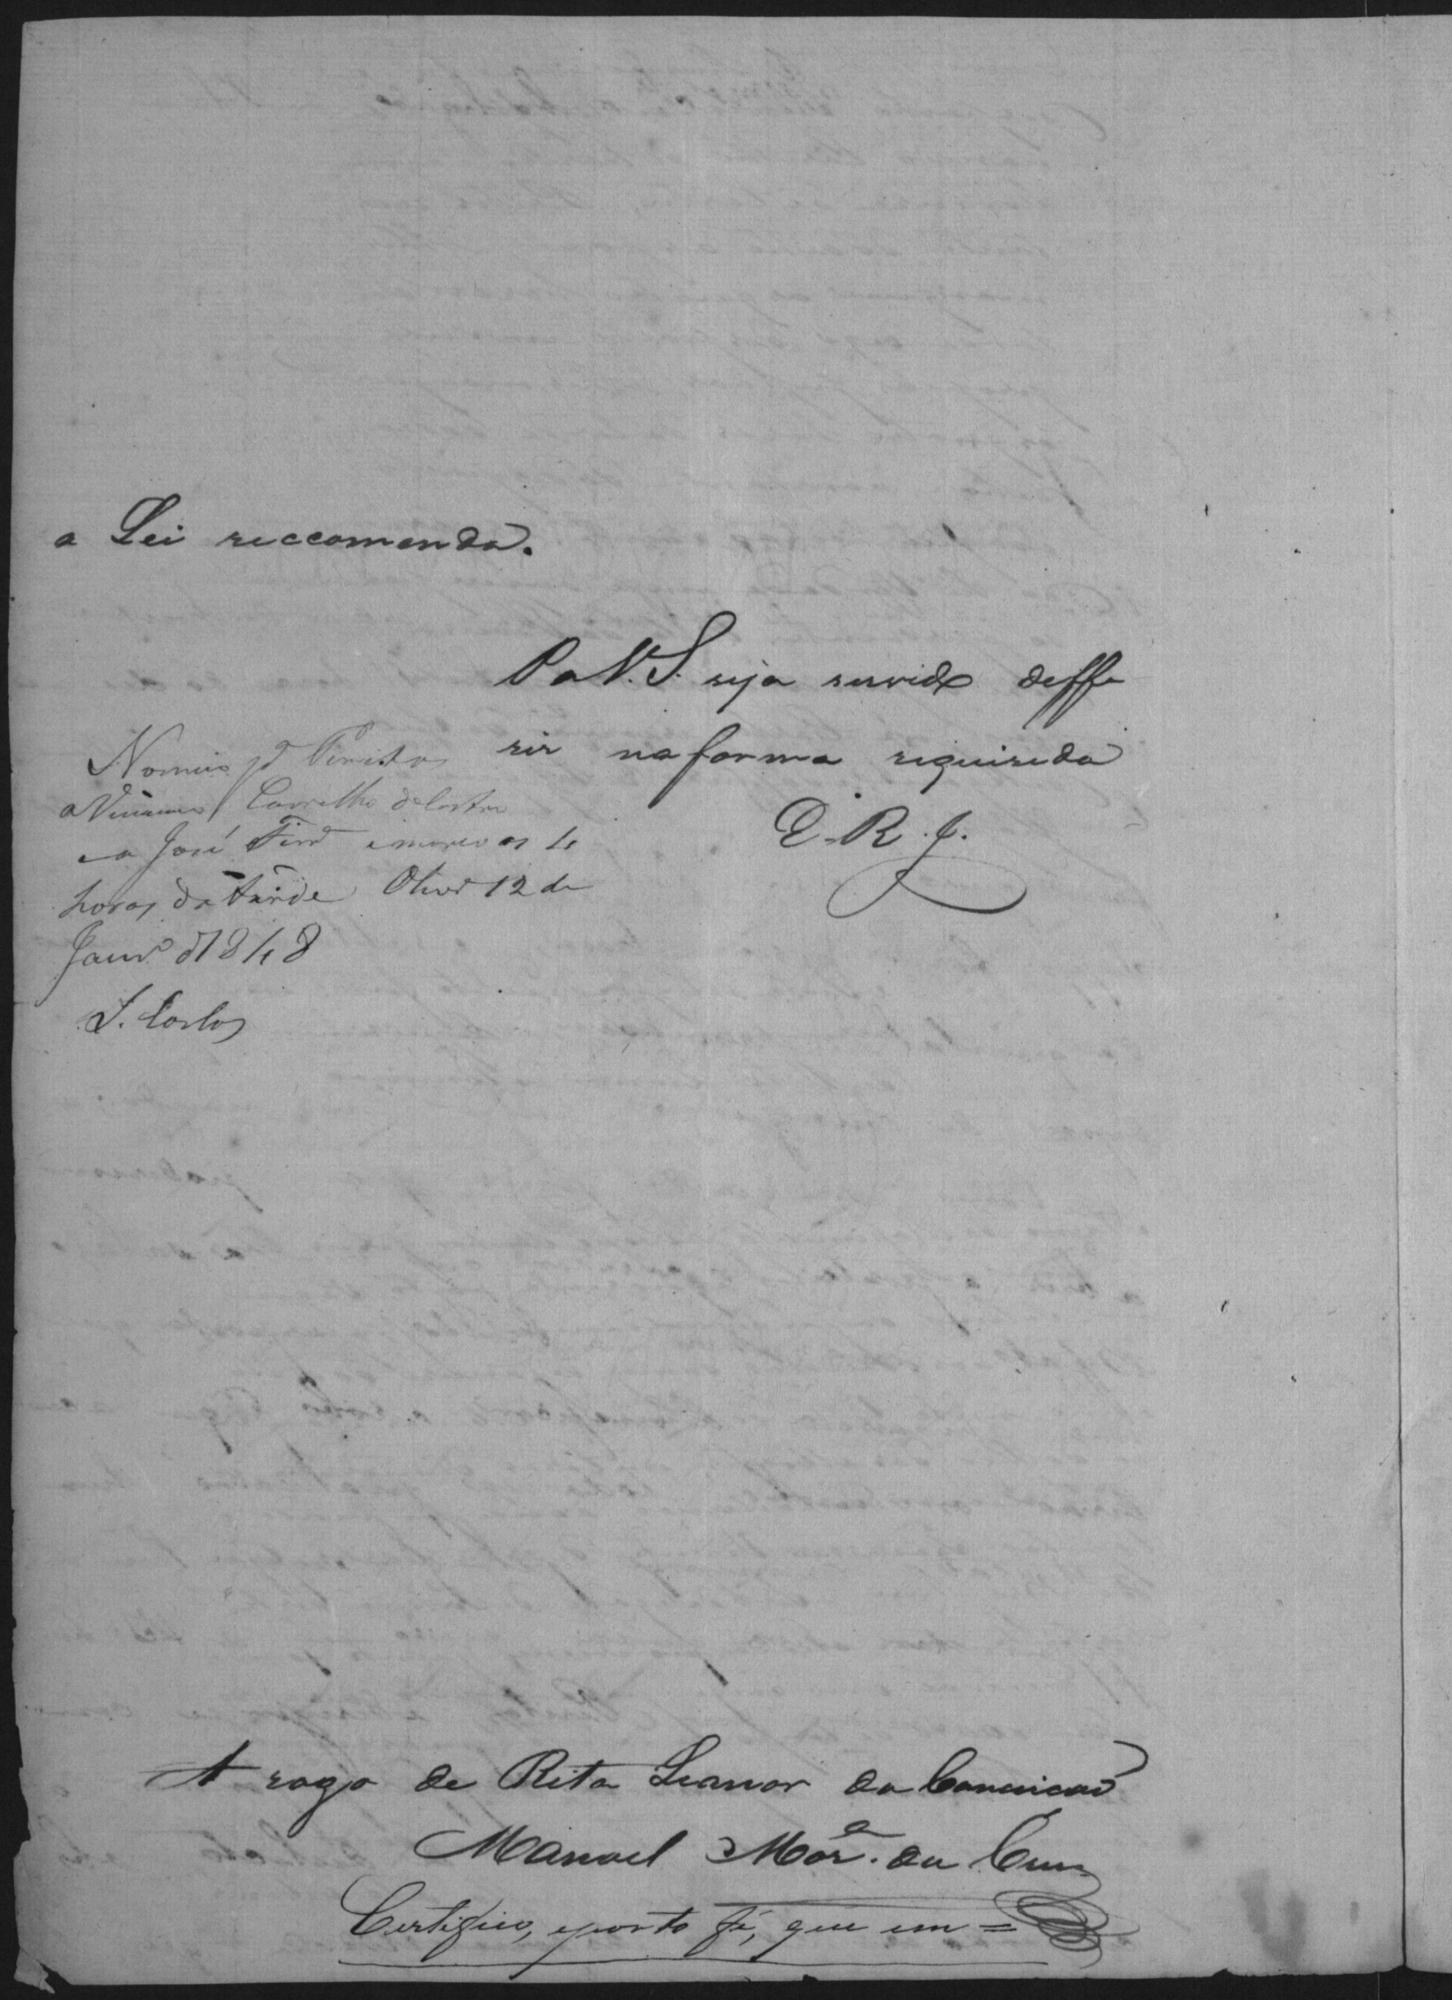 a Lei reccomenda.
P a V. S. seja servido deffe
rir na forma requirida
E. R. J.
Nomeio pª Peritos
a Carvalho de Castro
e a José e marco as 4
horas da tarde 12 de
Janrº d 1848
J. Carlos
A rogo de Rita Leanor da Conceicaõ
Manoel Morª. da Cruz
Certifico, eporto fé, que em =